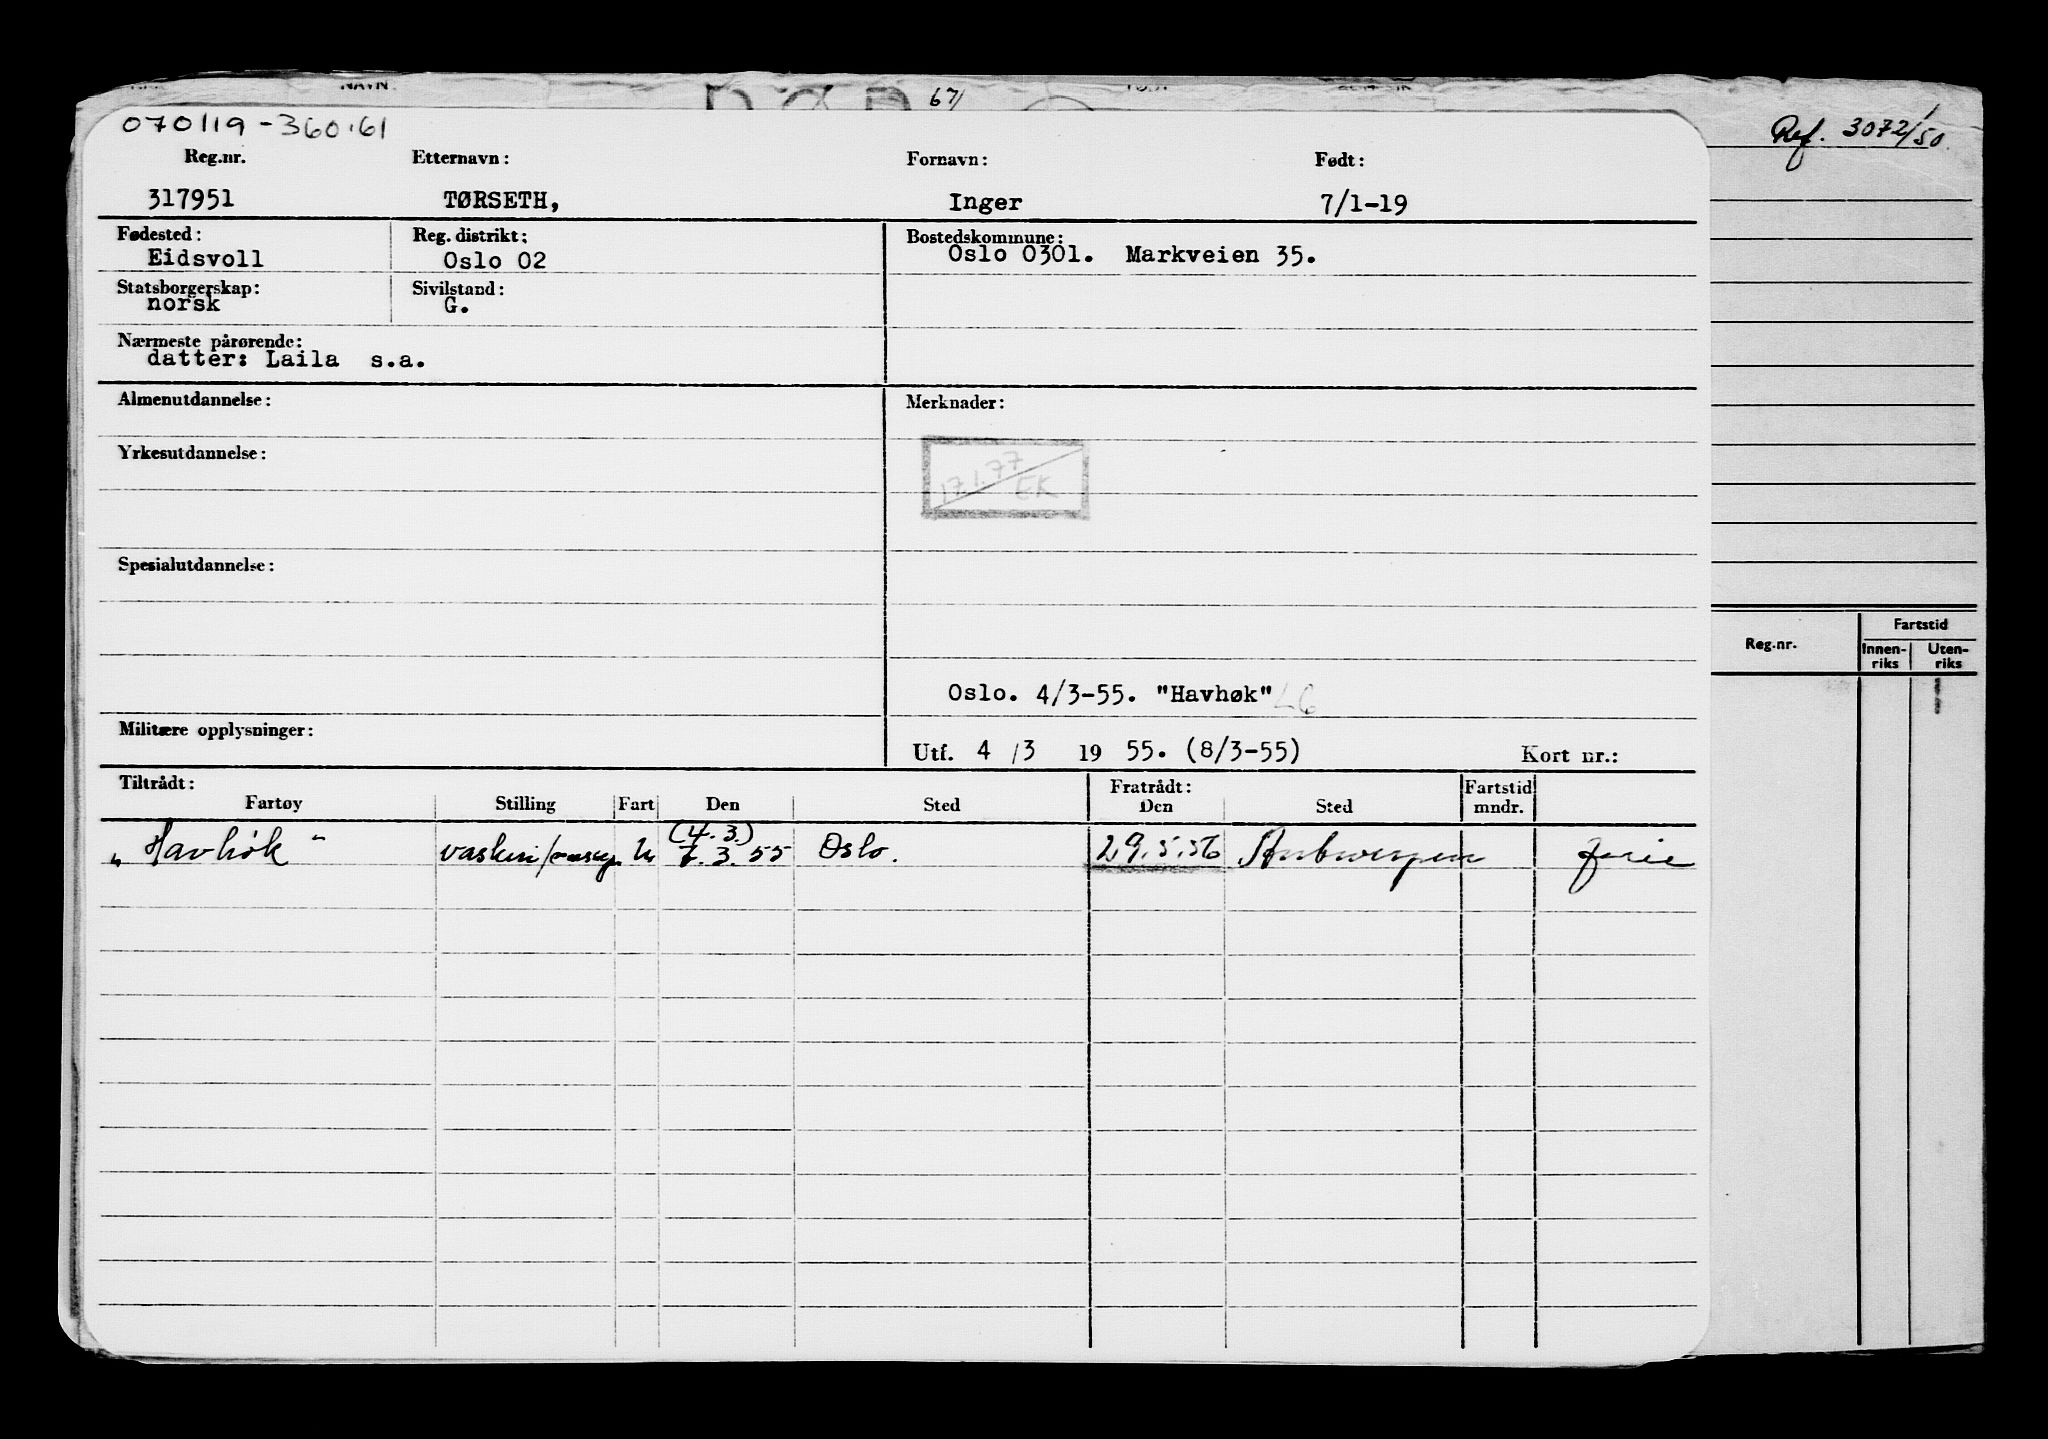 67/
Ref. 3072/50
070119-36061
Reg.nr. Etternavn: Fornavn: Født:
317951 TØRSETH, Inger 7/1-19
Fødested: Reg. distrikt: Bostedskommune:
Eidsvoll Oslo 02 Oslo 0301. Markveien 35.
Statsborgerskap: Sivilstand:
norsk G.
Nærmeste pårørende:
datter: Laila s.a.
Almenutdannelse: Merknader:
Yrkesutdannelse:
17.1.77
EK
Spesialutdannelse:
Oslo. 4/3-55. "Havhøk"
Militære opplysninger:
Utf. 4 /3 19 55. (8/3-55) Kort nr.:
Tiltrådt: Fratrådt: Fartstid
Fartøy Stilling Fart Den Sted Den Sted mndr.
(4.3.)
"Havhøk" vaskeri/ U 7.3.55 Oslo. 29.5.56 Antwerpen ferie
Reg.nr. Fartstid
Innen-riks Uten-riks